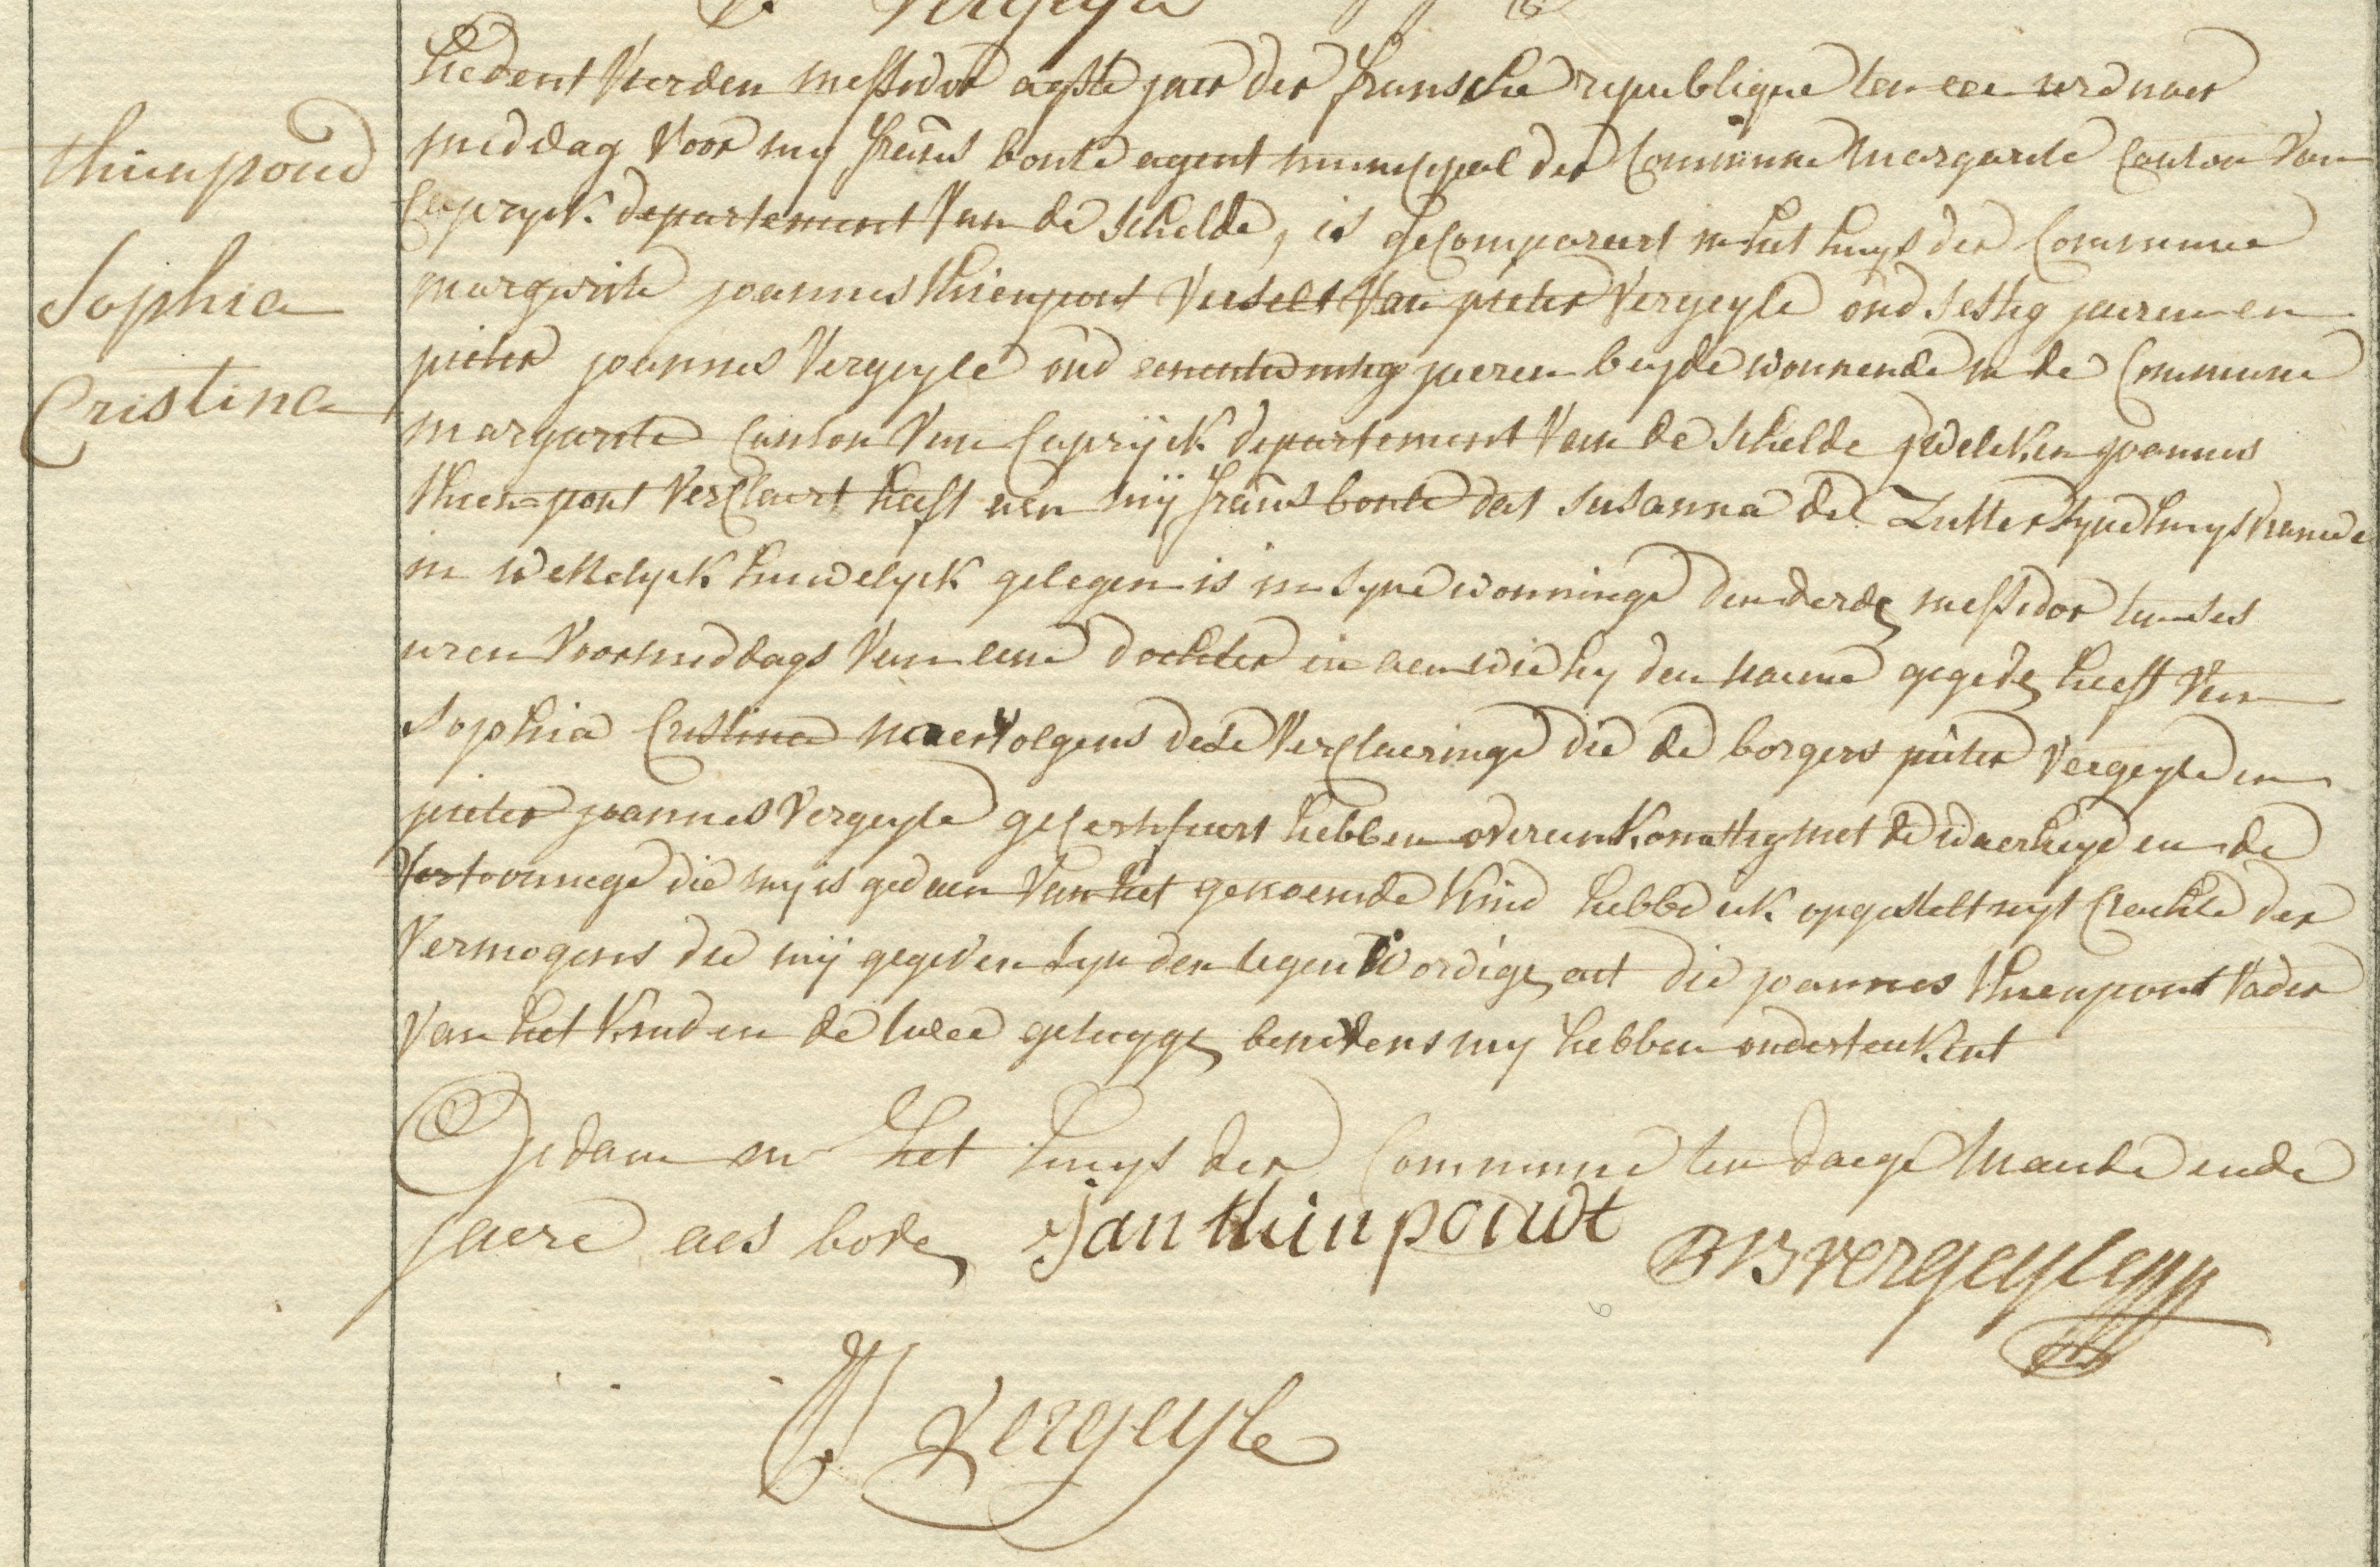 thienpond
Sophia
Cristina
hedent vierden messidor agste jaer der fransche republique ten een ure naer
middag voor my frans bonte agent municipael der Commune margarite Canton van
Capryck departement van de schelde, is gecompareert in het huys der Commune
margarite joannes thienpont verselt van pieter vergeyle oud sestig jaeren en
pieter joannes vergeyle oud jaeren beyde woonende in de Commune
margarite Canton van Capryck departement van de schelde welcken joannes
thienpont verclaert heeft aen mij frans bonte dat susanna de Zutter syne huysvrauwe
in wettelyck huwelyck gelegen is in syne wooninge den derde messidor ten ses
uren voormiddags van eene dochter in aen wie hy den naeme gegeve heeft van
Sophia Cristina naervolgens dese verclaeringe die de borgers pieter vergeyle en
pieter joannes vergeyle gecertifieert hebben overeenkomstig met de waerheyd en de
vertooninge die my is gedaen van het genoemde kind hebbe ick opgestelt uyt crachte der
vermogens die mij gegeven syn den tegenwordige act die joannes thienpont vader
van het kind en de twee getuyge benevens my hebben onderteekent
Gedaen in het huys der Commune ten daege maende ende
jaere als bove Jan thinpondt vergeyle
vergeyle